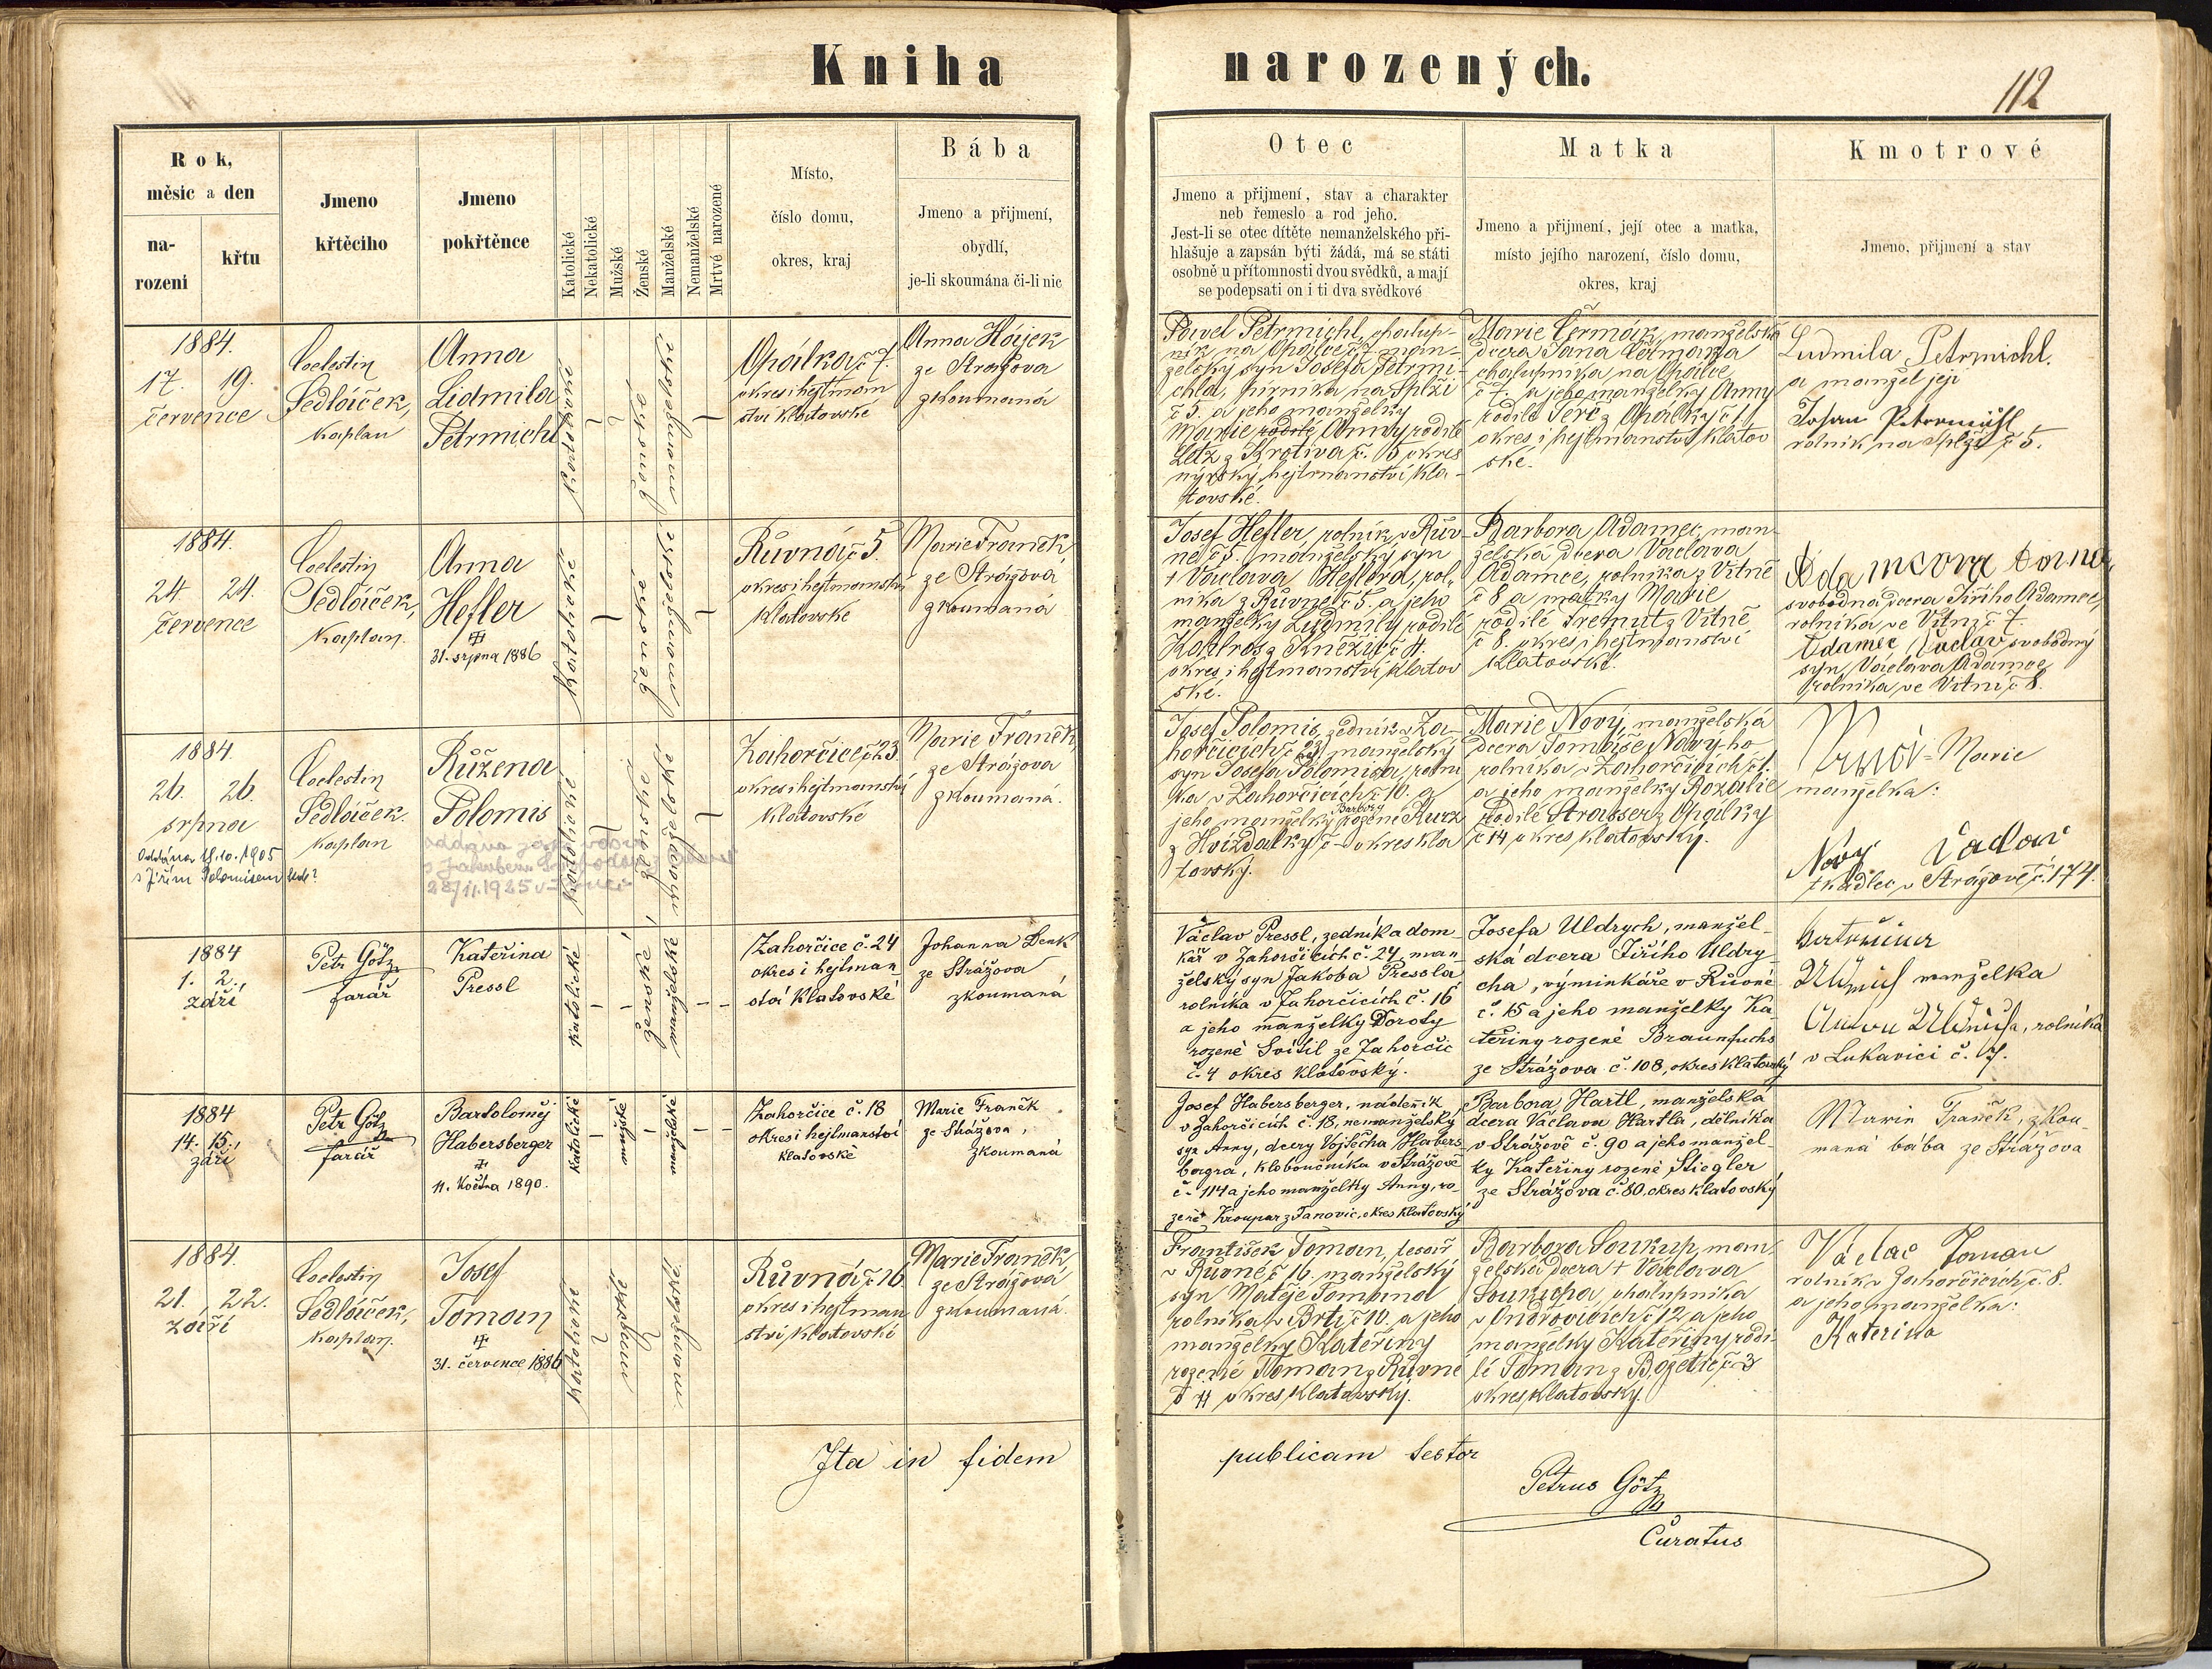 Kniha narozených.
112
Rok,
měsic a den
na-
rozeni
křtu
Jmeno
křtěciho
Jmeno
pokřtěnce
Katolické
Nekatolické
Mužské
Ženské
Manželské
Nemanželské
Mrtvé narozené
Místo,
číslo domu,
okres, kraj
Bába
Jmeno a přijmení,
obydlí,
je-li skoumána či-li nic
Otec
Jmeno a přijmení, stav a charakter
neb řemeslo a rod jeho.
Jest-li se otec dítěte nemanželského při-
hlášuje a zapsán býti žádá, má se státi
osobně u přítomnosti dvou svědků, a mají
se podepsati on i ti dva svědkové
Matka
Jmeno a přijmení, její otec a matka,
místo jejího narození, číslo domu,
okres, kraj
Kmotrové
Jmeno, přijmení a stav
1884.
17. 19.
července
Coelestin
Sedláček,
kaplan
Anna
Lidmila
Petrmichl
Katolické
ženské
manželské
Opálka č 7.
okres i hejtman
ství Klatovské
Anna Hájek
ze Strážova
zkoumaná
Pavel Petrmichl, chalup-
ník na Opálce č 7. man-
želský syn Josefa Petrmi-
chla, na Splži
č 5. a jeho manželky
Marie rodilé Anny rodilé
Letz z Brotiva č. 5 okres
nýrský hejtmanství Kla-
tovské.
Marie Čermák, manželská
dcera Jana Čermáka
chalupníka na Opálce
č 7. a jeho manželky Anny
rodilé z Opálky č 1
okres i hejtmanství Klatov
ské.
Ludmila Petrmichl.
a manžel její
Johan Petermichl
rolník na Splži č 5.
1884.
24. 24.
července
Coelestin
Sedláček,
kaplan.
Anna
Hefler
31. srpna 1886
Katolické
ženské
manželské
Růvná č 5.
okres i hejtmanství
Klatovské
Marie Franěk
ze Strážova
zkoumaná
Josef Hefler, rolník v Rův-
né č 5. manželský syn
+ Václava Heflera, rol-
níka z Růvné č 5. a jeho
manželky Ludmily rodilé
z Kněžic č 4.
okres i hejtmanství Klatov
ské.
Barbora Adamec, man-
želská dcera Václava
Adamce, rolníka z Vítně
č 8 a matky Marie
rodilé Tremut z Vítně
č 8. okres i hejtmanství
Klatovské.
Adamcova Anna
svobodná dcera Jiřího Adamce,
rolníka ve Vítni č 7.
Adamec Václav svobodný
syn Václava Adamce
rolníka ve Vítni č 8.
1884.
26. 26.
srpna
Oddána 18.10.1905
s Jiřím Polomisem
Coelestin
Sedláček.
kaplan
Růžena
Polomis
oddána jako vdova
s Jakubem
28/11.1925
Katolické
ženské
manželské
Zahorčice č 23.
okres i hejtmanství
Klatovské
Marie Franěk,
ze Strážova
zkoumaná.
Josef Polomis, zedník v Za-
horčicích č 23, manželský
syn Josefa Polomisa, rolní
ka v Zahorčicích č 10. a
jeho manželky Barbory rozené Kurz
z Hvízdalky č - okres Kla
tovský.
Marie Nový, manželská
dcera Tomáše Nového
rolníka v Zahorčicích č 1.
a jeho manželky Rozalie
rodilé Strasser z Opálky
č 14 okres Klatovský.
Marie
manželka:
Nový Vaclav
tkadlec v Strážově č. 174.
1884
1. 2.,
září
Petr Götz
farář
Kateřina
Pressl
Katolické
ženské
manželské
Zahorčice č. 24
okres i hejtman-
ství Klatovské
Johanna Denk
ze Strážova
zkoumaná
Václav Pressl, zedník a dom-
kář v Zahorčicích č. 24, man
želský syn Jakoba Pressla
rolníka v Zahorčicích č. 16
a jeho manželky Doroty
rozené Svítil ze Zahorčic
č. 4 okres Klatovský.
Josefa Uldrych, manžel-
ská dcera Jiřího Uldry-
cha, výminkáře v Růvné
č. 15 a jeho manželky Ka-
teřiny rozené Braunfuchs
ze Strážova č. 108, okres Klatovský
manželka
rolníka
v Lukavici č. 17.
1884
14. 15.,
září
Petr Götz
farář
Bartoloměj
Habersberger
11. Května 1890.
Katolické
mužské
manželské
Zahorčice č. 18
okres i hejtmanství
Klatovské
Marie Franěk
ze Strážova,
zkoumaná
Josef Habersberger, nádeník
v Zahorčicích č. 18, nemanželský
syn Anny, dcery Vojtěcha Habers
bergra, kloboučníka v Strážově
č. 114 a jeho manželky Anny, ro-
zené Kroupar z Janovic, okres Klatovský
Barbora Hartl, manželská
dcera Václava Hartla, dělníka
v Strážově č. 90 a jeho manžel-
ky Kateřiny rozené Stiegler
ze Strážova č. 80, okres Klatovský
Marie Franěk, zkou-
maná bába ze Strážova
1884.
21. 22.
září
Coelestin
Sedláček,
kaplan.
Josef
Toman
31. července 1886
Katolické
mužské
manželské
Růvná č 16
okres i hejtman
ství Klatovské
Marie Franěk,
ze Strážova
zkoumaná.
František Toman, tesař
v Růvné č 16. manželský
syn Matěje Tomana
rolníka v Brti č 10. a jeho
manželky Kateřiny
rozené Toman z Růvné
č 11 okres Klatovský.
Barbora Soukup, man-
želská dcera + Václava
Soukupa, chalupníka
v Ondřovicích č 12 a jeho
manželky Kateřiny rodi-
lé Toman z Božetic č 3
okres Klatovský.
Václav Toman
rolník v Zahorčicích č. 8.
a jeho manželka:
Katerina
Ita in fidem publicam testor
Petrus Götz
Curatus